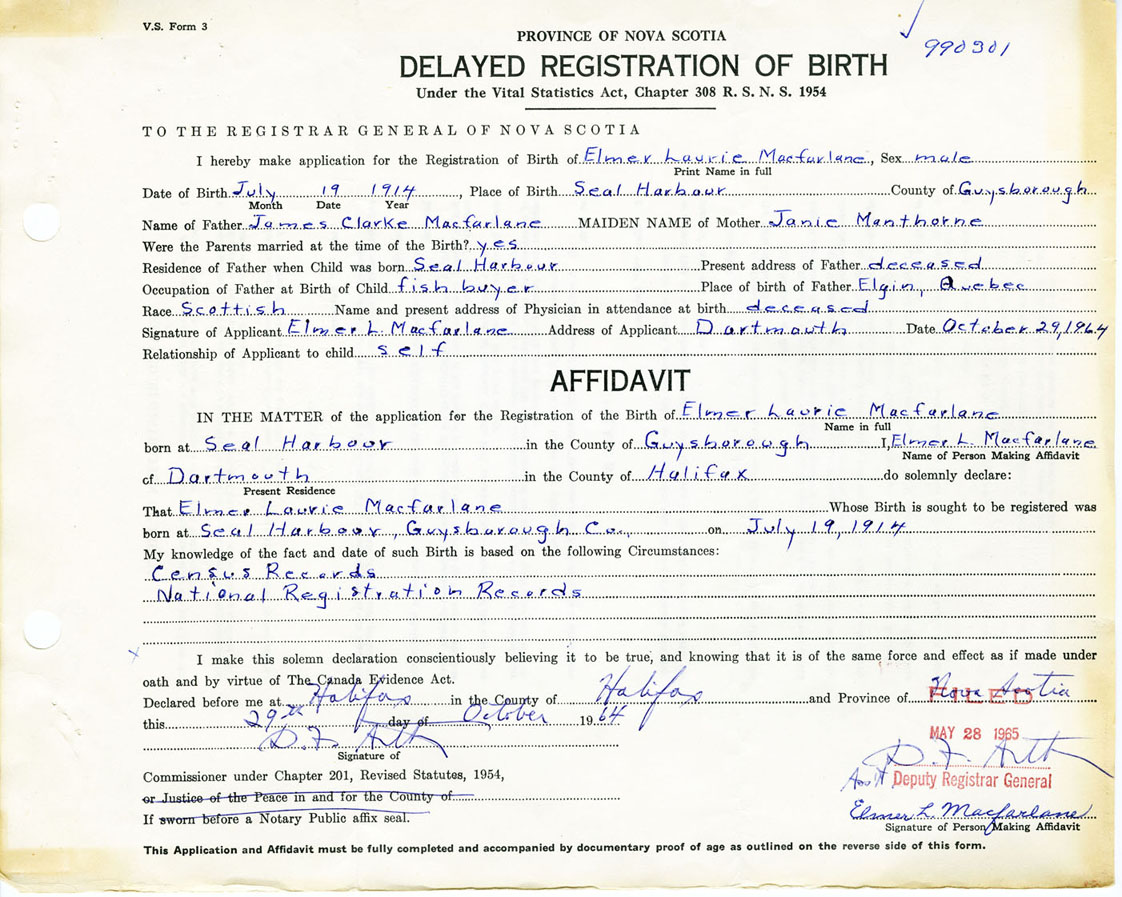 V.S. Form 3
990301
PROVINCE OF NOVA SCOTIA
DELAYED REGISTRATION OF BIRTH
Under the Vital Statistics Act, Chapter 308 R. S. N. S. 1954
TO THE REGISTRAR GENERAL OF NOVA SCOTIA
I hereby make application for the Registration of Birth of Elmer Laurie Macfarlane, Sex male
Print Name in full
Date of Birth July 19 1914, Place of Birth Seal Harbour County of Guysborough
Month Date Year
Name of Father James Clarke Macfarlane MAIDEN NAME of Mother Janie Manthorne
Were the Parents married at the time of the Birth? yes
Residence of Father when Child was born Seal Harbour Present address of Father deceased
Occupation of Father at Birth of Child fish buyer Place of birth of Father Elgin, Quebec
Race Scottish Name and present address of Physician in attendance at birth deceased
Signature of Applicant Elmer L. Macfarlane Address of Applicant Dartmouth Date October 29, 1964
Relationship of Applicant to child self
AFFIDAVIT
IN THE MATTER of the application for the Registration of the Birth of Elmer Laurie Macfarlane
Name in full
born at Seal Harbour in the County of Guysborough I, Elmer L. Macfarlane
Name of Person Making Affidavit
of Dartmouth in the County of Halifax do solemnly declare:
Present Residence
That Elmer Laurie Macfarlane Whose Birth is sought to be registered was
born at Seal Harbour, Guysborough Co., on July 19, 1914
My knowledge of the fact and date of such Birth is based on the following Circumstances:
Census Records
National Registration Records
I make this solemn declaration conscientiously believing it to be true, and knowing that it is of the same force and effect as if made under
oath and by virtue of The Canada Evidence Act.
Declared before me at Halifax in the County of Halifax and Province of Nova Scotia
FILED
this 29th day of October 1964
MAY 28 1965
D. F. Arth
Signature of
D. F. Arth
Commissioner under Chapter 201, Revised Statutes, 1954,
Ass't Deputy Registrar General
or Justice of the Peace in and for the County of
Elmer L. Macfarlane
If sworn before a Notary Public affix seal.
Signature of Person Making Affidavit
This Application and Affidavit must be fully completed and accompanied by documentary proof of age as outlined on the reverse side of this form.